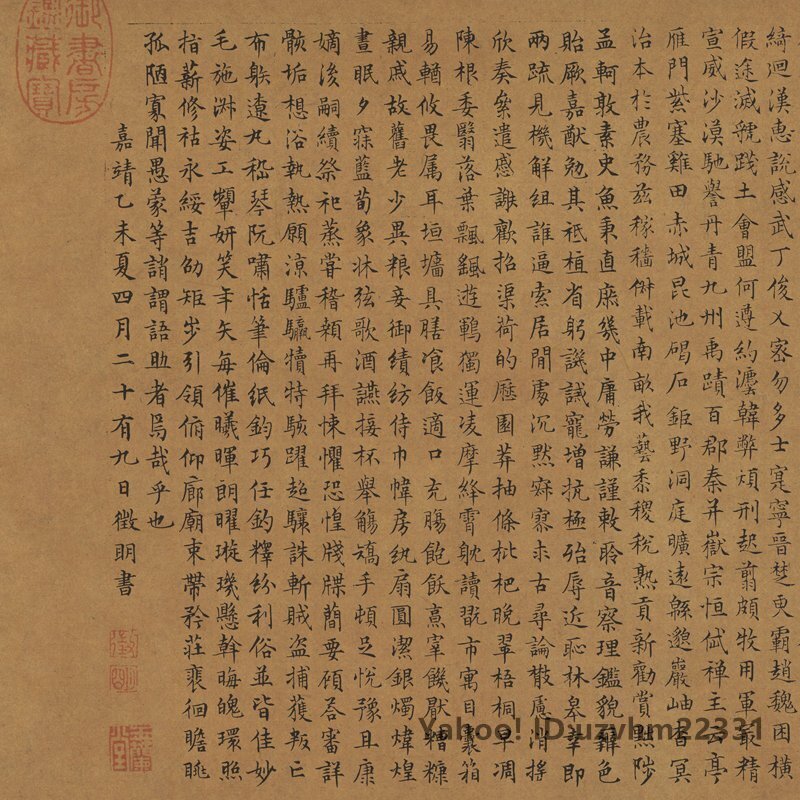 綺迴漢惠說感武丁俊乂密勿多士寔寧晉楚更霸趙魏困橫
假途滅虢踐土會盟何遵約灋韓弊煩刑起翦頗牧用軍最精
宣威沙漠馳譽丹青九州禹蹟百郡秦并嶽宗恒岱禪主云亭
雁門紫塞雞田赤城昆池碣石鉅野洞庭曠遠緜邈巖岫杳冥
治本於農務茲稼穡俶載南畝我藝黍稷稅熟貢新勸賞黜陟
孟軻敦素史魚秉直庶幾中庸勞謙謹敕聆音察理鑑貌辯色
貽厥嘉猷勉其祗植省躬譏誡寵增抗極殆辱近恥林皋幸即
兩疏見機解組誰逼索居閒處沉默寂寥求古尋論散慮逍搖
欣奏累遣慼謝歡招渠荷的歷園莽抽條枇杷晚翠梧桐早凋
陳根委翳落葉飄颻遊鵾獨運凌摩絳霄耽讀翫市寓目囊箱
易輶攸畏属耳垣牆具膳飡飯適口充腸飽飫烹宰饑厭糟糠
親戚故舊老少異粮妾御績紡侍巾帷房紈扇圓潔銀燭煒煌
晝眠夕寐藍筍象牀弦歌酒讌接杯舉觴矯手頓足悅豫且康
嫡後嗣續祭祀蒸嘗稽顙再拜悚懼恐惶牋牒簡要顧答審詳
骸垢想浴執熱願涼驢騾犢特駭躍超驤誅斬賊盜捕獲叛亡
布躲遼丸嵇琴阮嘯恬筆倫紙鈞巧任釣釋紛利俗並皆佳妙
毛施淑姿工顰妍笑年矢每催曦暉朗曜璇璣懸斡晦魄環照
指薪修祜永綏吉劭矩步引領俯仰廊廟束帶矜莊徘徊瞻眺
孤陋寡聞愚蒙等誚謂語助者焉哉乎也
嘉靖乙未夏四月二十有九日徵明書
御書房鑑藏寶
徵明
Yahoo! ID:uzvhm22331